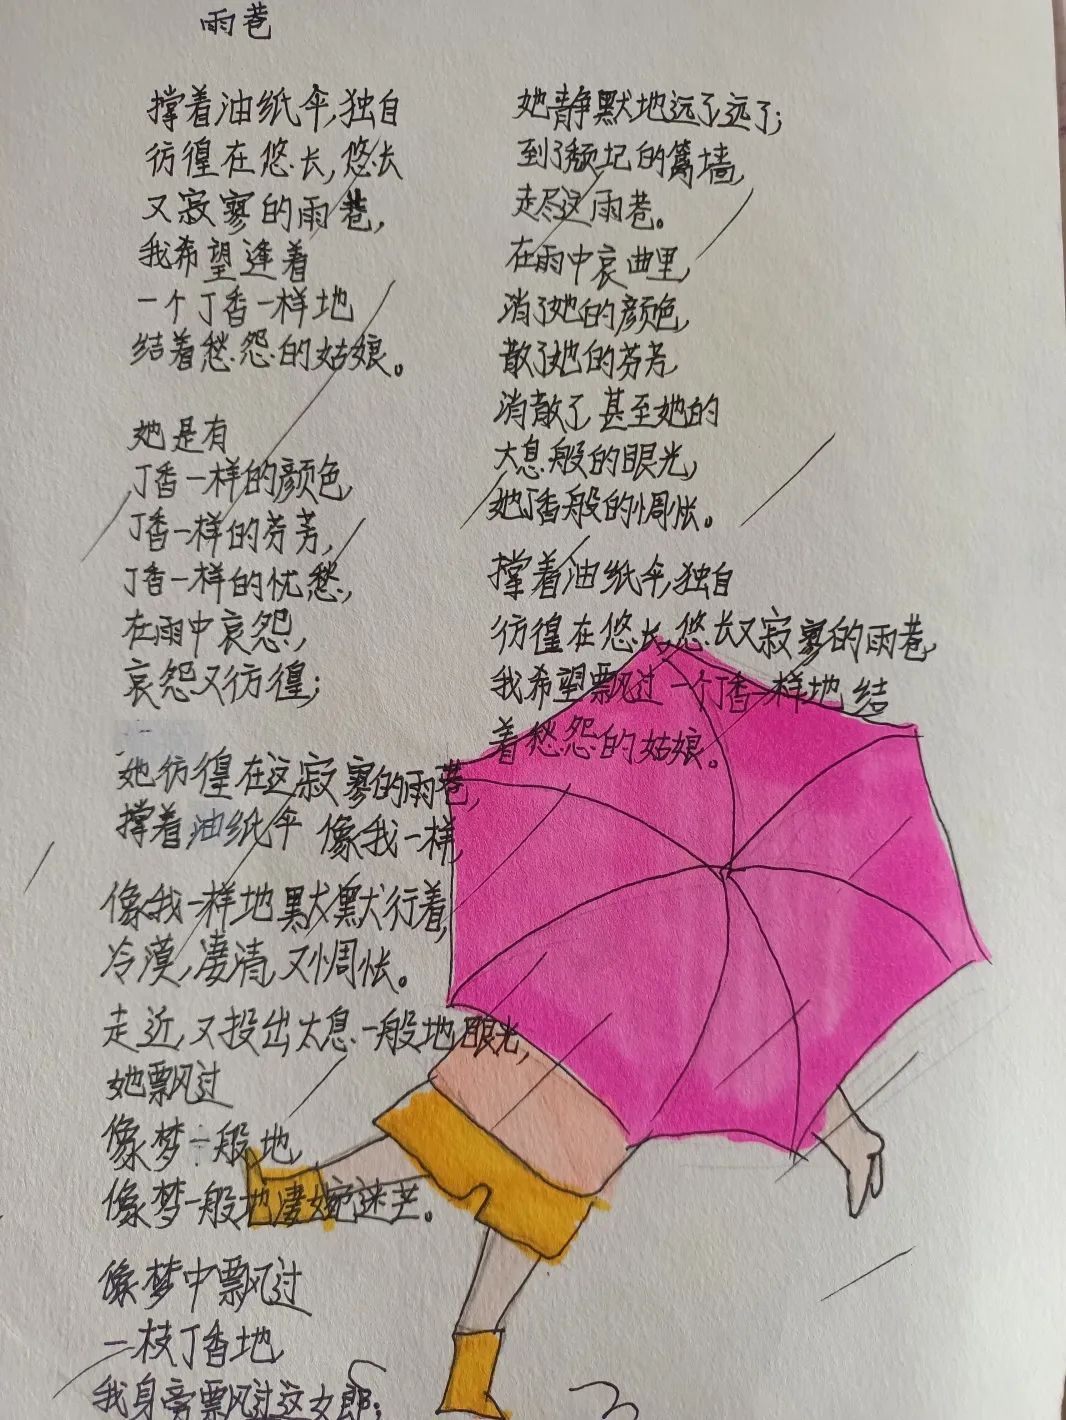 雨巷
撑着油纸伞,独自
彷徨在悠长,悠长
又寂寥的雨巷,
我希望逢着
一个丁香一样地
结着愁怨的姑娘。
她是有
丁香一样的颜色,
丁香一样的芬芳,
丁香一样的忧愁,
在雨中哀怨,
哀怨又彷徨;
她彷徨在这寂寥的雨巷,
撑着油纸伞 像我一样,
像我一样地默默行着,
冷漠,凄清,又惆怅。
走近,又投出太息一般地眼光,
她飘过
像梦一般地,
像梦一般地凄婉迷茫。
像梦中飘过
一枝丁香地,
我身旁飘过这女郎;
她静默地远了远了;
到了颓圮的篱墙,
走尽这雨巷。
在雨中哀曲里,
消了她的颜色,
散了她的芬芳,
消散了,甚至她的
大息般的眼光,
她丁香般的惆怅。
撑着油纸伞,独自
彷徨在悠长,悠长又寂寥的雨巷,
我希望飘过一个丁香一样地结
着愁怨的姑娘。